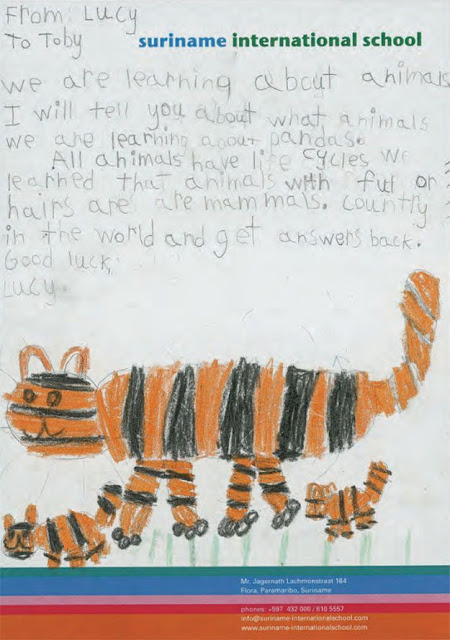 From: Lucy
To Toby
suriname international school
we are learning about animals
I will tell you about what animals
we are learning about pandas.
All animals have life cycles we
learned that animals with fur or
hairs are are mammals. country
in the world and get answers back.
Good luck,
Lucy.
Mr. Jagernath Lachmonstraat 164
Flora, Paramaribo, Suriname
phones: +597 432 000 / 610 5557
info@suriname-internationalschool.com
www.suriname-internationalschool.com